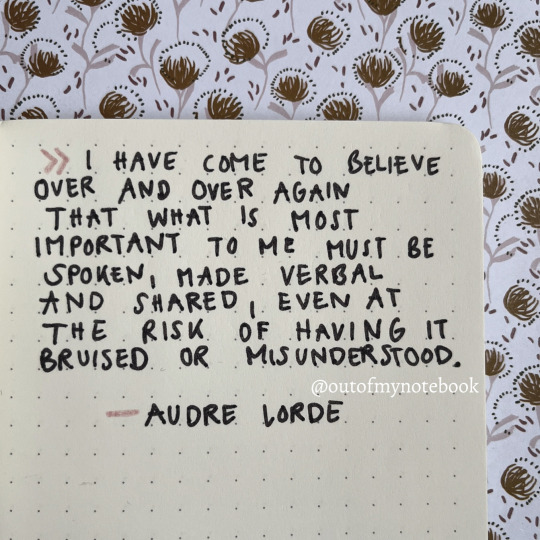 >> I HAVE COME TO BELIEVE
OVER AND OVER AGAIN
THAT WHAT IS MOST
IMPORTANT TO ME MUST BE
SPOKEN, MADE VERBAL
AND SHARED, EVEN AT
THE RISK OF HAVING IT
BRUISED OR MISUNDERSTOOD.
@outofmynotebook
— AUDRE LORDE